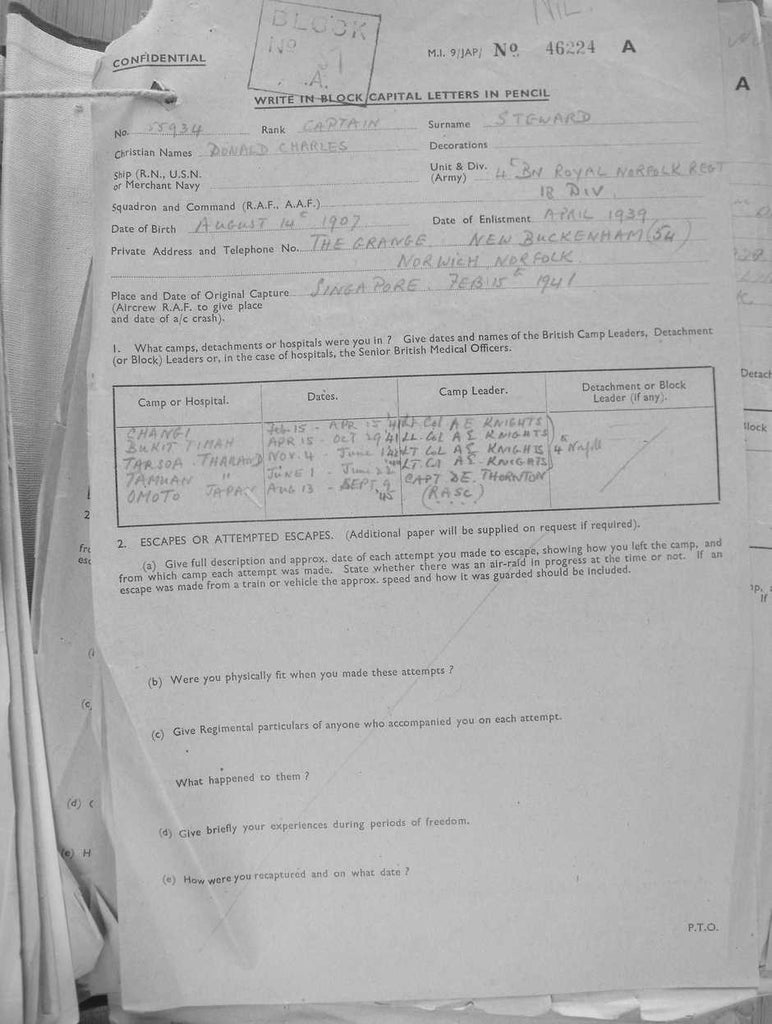 NIL.
BLOCK
No 
A.
CONFIDENTIAL
M.I. 9/JAP/ No. 46224 A
WRITE IN BLOCK CAPITAL LETTERS IN PENCIL
No. 55934 Rank CAPTAIN Surname STEWARD
Christian Names DONALD CHARLES Decorations
Ship (R.N., U.S.N. or Merchant Navy
Unit & Div. (Army) 4th BN ROYAL NORFOLK REGT
18 DIV
Squadron and Command (R.A.F., A.A.F.)
Date of Birth AUGUST 14th 1907 Date of Enlistment APRIL 1939
Private Address and Telephone No. THE GRANGE NEW BUCKENHAM (54)
NORWICH NORFOLK.
Place and Date of Original Capture SINGAPORE. FEB 15th 1941
(Aircrew R.A.F. to give place
and date of a/c crash).
1. What camps, detachments or hospitals were you in ? Give dates and names of the British Camp Leaders, Detachment
(or Block) Leaders or, in the case of hospitals, the Senior British Medical Officers.
Camp or Hospital. Dates. Camp Leader. Detachment or Block
Leader (if any).
CHANGI Feb 15 - APR 15 41 Lt Col A E KNIGHTS
BUKIT TIMAH APR 15 - OCT 29 41 Lt. Col A E KNIGHTS
TARSOA THAILAND NOV. 4 - June 1 LT COL A E KNIGHTS 4 Norfolk
TAMUAN " JUNE 1 - June 22 LT. Col A E. KNIGHTS
OMOTO JAPAN AUG 13 - SEPT. 9 45 CAPT D.E. THORNTON
(RASC)
2. ESCAPES OR ATTEMPTED ESCAPES. (Additional paper will be supplied on request if required).
(a) Give full description and approx. date of each attempt you made to escape, showing how you left the camp, and
from which camp each attempt was made. State whether there was an air-raid in progress at the time or not. If an
escape was made from a train or vehicle the approx. speed and how it was guarded should be included.
(b) Were you physically fit when you made these attempts ?
(c) Give Regimental particulars of anyone who accompanied you on each attempt.
What happened to them ?
(d) Give briefly your experiences during periods of freedom.
(e) How were you recaptured and on what date ?
P.T.O.
A
Detach
lock